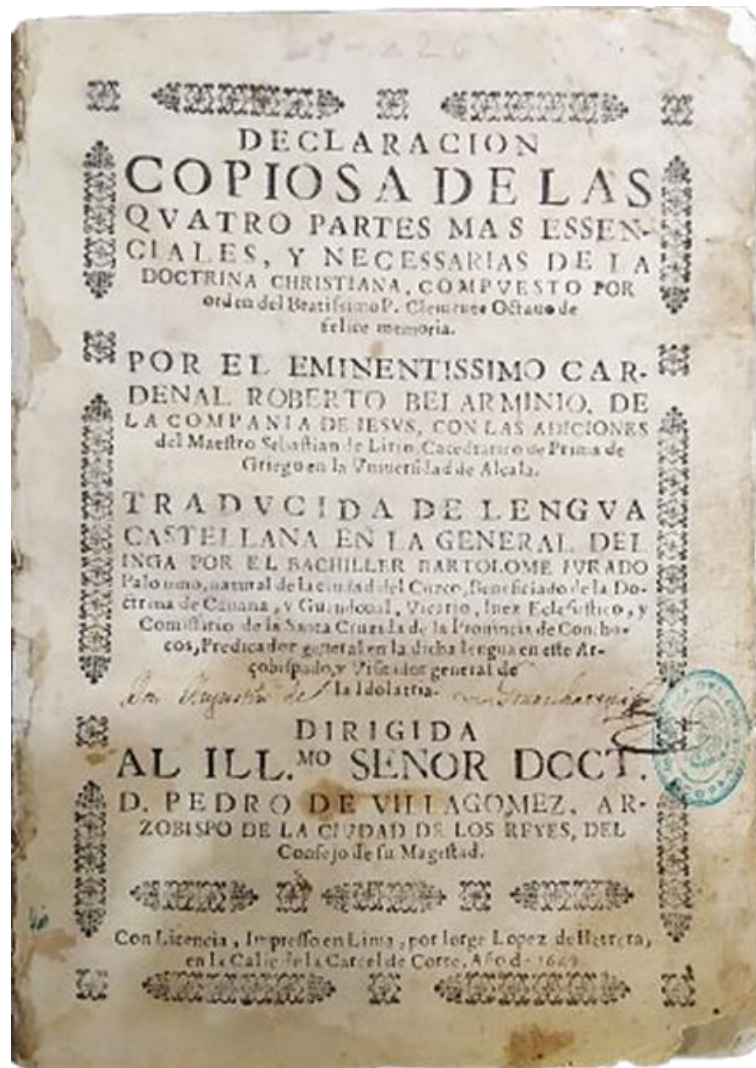 DECLARACION
COPIOSA DE LAS
QVATRO PARTES MAS ESSEN-
CIALES, Y NECESSARIAS DE LA
DOCTRINA CHRISTIANA, COMPVESTO POR
orden del Beatissimo P. Clemente Octauo de
felice memoria.
POR EL EMINENTISSIMO CAR-
DENAL ROBERTO BELARMINIO, DE
LA COMPANIA DE IESVS, CON LAS ADICIONES
del Maestro Sebastian de Lirio, Catedratico de Prima de
Griego en la Vniuersidad de Alcala.
TRADVCIDA DE LENGVA
CASTELLANA EN LA GENERAL DEL
INGA POR EL BACHILLER BARTOLOME IVRADO
Palomino, natural de la ciudad del Cuzco, Beneficiado de la Do-
ctrina de Cauana, y Guandoual, Vicario, Iuez Eclesiastico, y
Comissario de la Santa Cruzada de la Prouincia de Concbu-
cos, Predicador general en la dicha lengua en este Ar-
çobispado, y Visitador general de
la Idolatria.
DIRIGIDA
AL ILL.MO SEÑOR DOCT.
D. PEDRO DE VILLAGOMEZ, AR-
ZOBISPO DE LA CIVDAD DE LOS REYES, DEL
Consejo de su Magestad.
Con Licencia, Impresso en Lima, por Iorge Lopez de Herrera,
en la Calle de la Carcel de Corte, Año de 1649